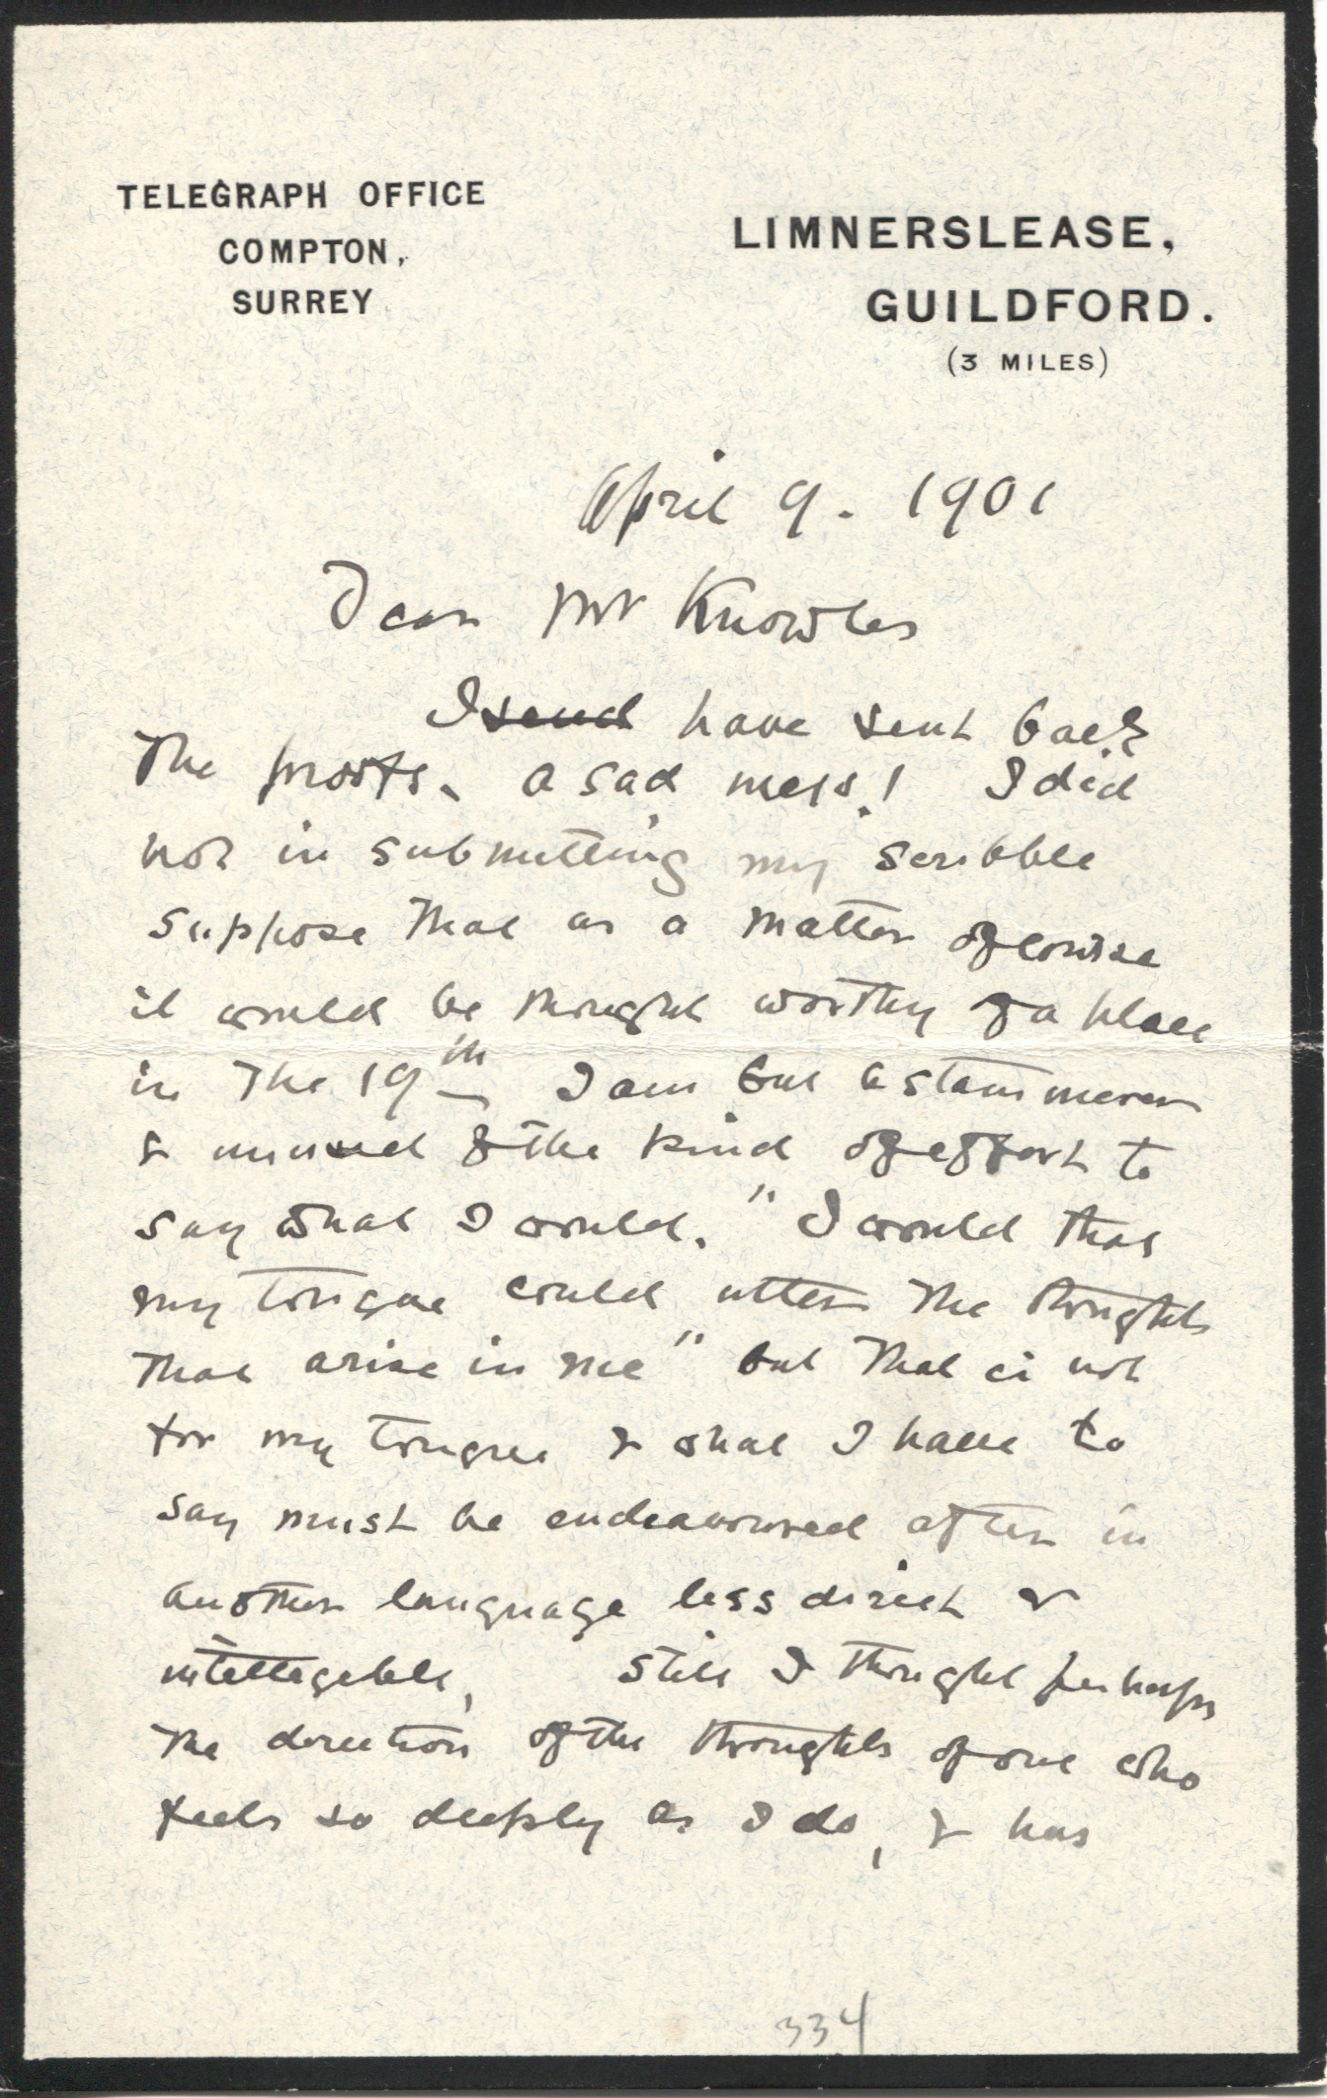 TELEGRAPH OFFICE
COMPTON,
SURREY
LIMNERSLEASE,
GUILDFORD.
(3 MILES)
April 9. 1901
Dear Mr Knowles
I send have sent back
The proofs, a sad mess! I did
not in submitting my scribble
suppose that as a matter of course
it would be thought worthy of a place
in The 19th I am but a stammerer
& unused to the kind of effort to
say what I would. "I would that
my tongue could utter the thoughts
that arise in me" but that is not
for my tongue & what I have to
say must be endeavoured after in
another language less direct &
intellegeble, Still I thought perhaps
the direction of the thoughts of one who
feels so deeply as I do, & has
334